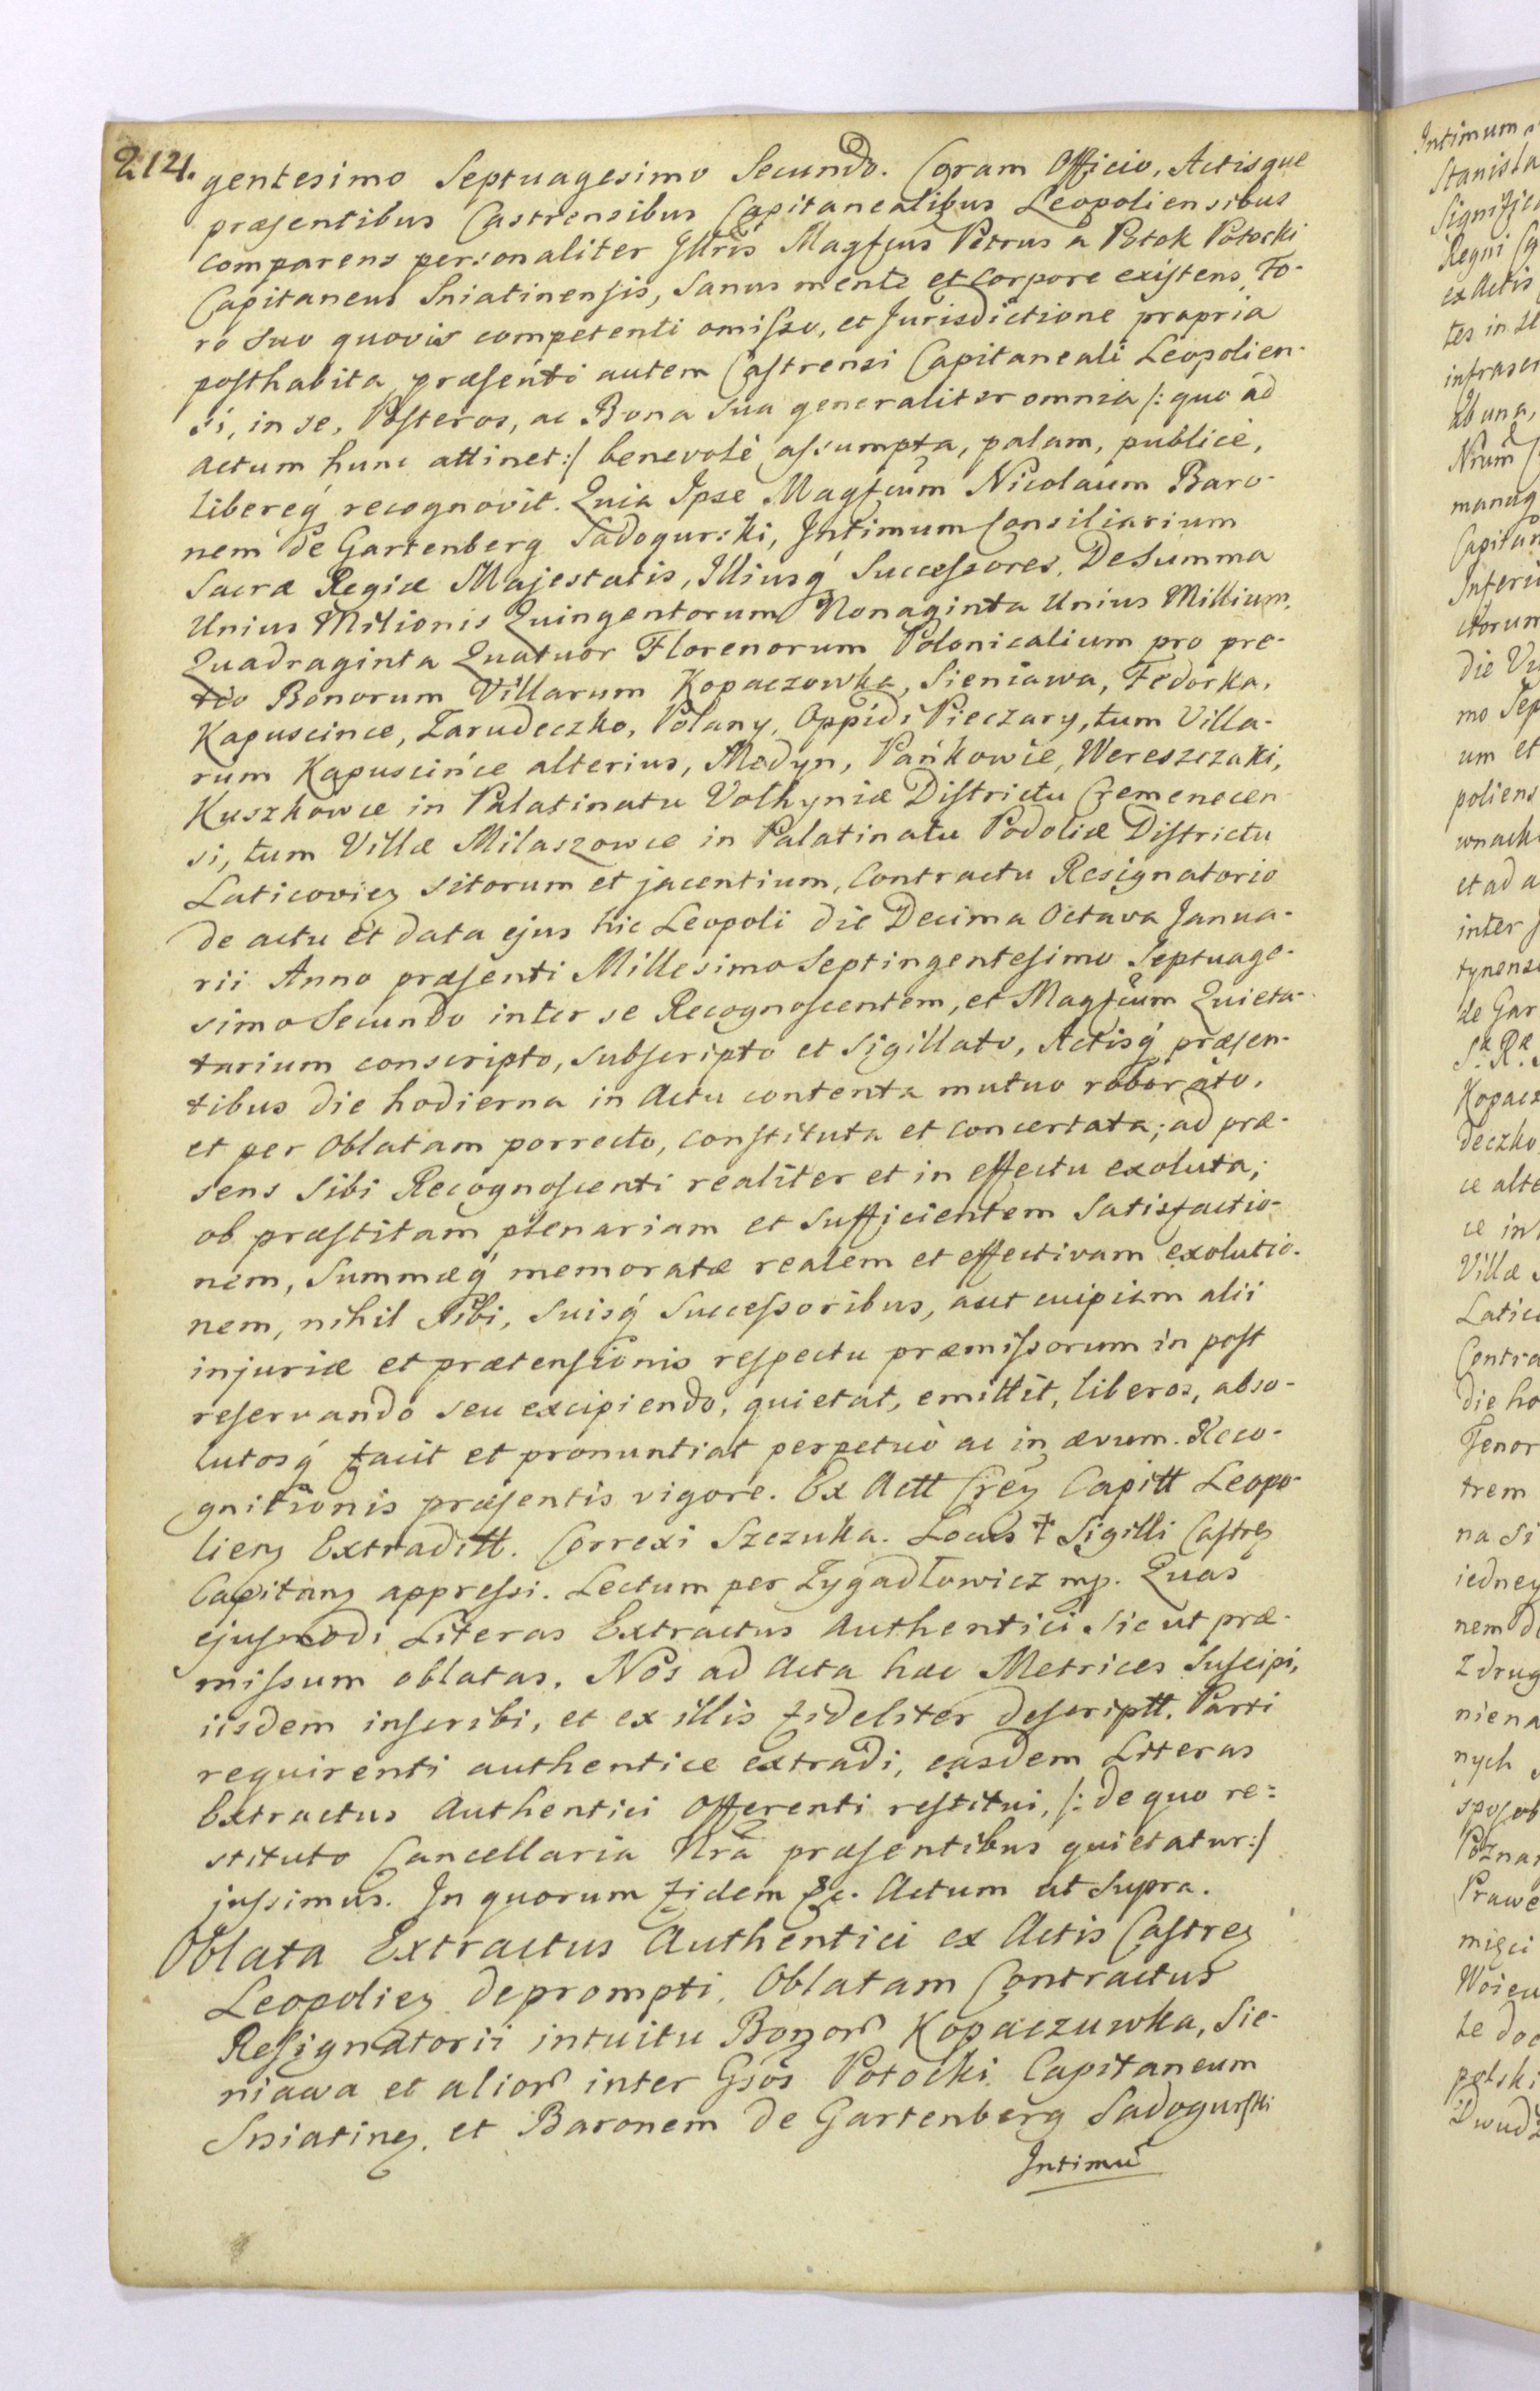 214.
gentesimo Septuagesimo Secundo. Coram Officio, Actisque
præsentibus Castrensibus Capitanealibus Leopoliensibus
comparens personaliter Jllris Magfcus Petrus a Potok Potocki
Capitaneus Sniatinensis, Sanus mente et Corpore existens, Fo-
ro suo quovis competenti omisso, et Jurisdictione propria
posthabita, præsenti autem Castrensi Capitaneali Leopolien-
si, in se, Posteros, ac Bona sua generaliter omnia /: quo ad
actum hunc attinet :/ benevolè assumpta, palam, publicè,
libereq́ recognovit. Quia Ipse Magfcum Nicolaum Baro-
nem de Gartenberg Sadogurski, Intimum Consiliarium
Sacræ Regiæ Majestatis, Illiusq́ Successores, De Summa
Unius Milionis Quingentorum Nonaginta Unius Millium,
Quadraginta Quatuor Florenorum Polonicalium pro pre-
tio Bonorum Villarum Kopaczowka, Sieniawa, Fedorka,
Kapuscince, Zarudeczko, Polany, Oppidi Pieczary, tum Villa-
rum Kapuscińce alterius, Medyn, Pańkowce, Wereszczaki,
Kuszkowce in Palatinatu Volhyniæ Districtu Cremenecen
si, tum Villæ Milaszowce in Palatinatu Podoliæ Districtu
Laticovieӡ sitorum et jacentium, Contractu Resignatorio
de actu et data ejus hic Leopoli die Decima Octava Janua-
rii Anno præsenti Millesimo Septingentesimo Septuage-
simo Secundo inter se Recognoscentem, et Magfcum Quieta-
tarium conscripto, subscripto et sigillato, Actisq́ præsen-
tibus die hodierna in Actu contenta mutuo roborato,
et per Oblatam porrecto, constituta et concertata; ad præ-
sens sibi Recognoscenti realiter et in effectu exoluta;
ob præstitam plenariam et sufficientem Satisfactio-
nem, Summæq́ memoratæ realem et effectivam exolutio-
nem, nihil sibi, Suisq́ Successoribus, aut cuipiam alii
injuriæ et prætensionis respectu præmissorum in post
reservando seu excipiendo, quietat, emittit, liberos, abso-
lutosq́ facit et pronuntiat perpetuò ac in ævum. Reco-
gnitionis præsentis vigore. Ex Actt Creӡ Capitt Leopo-
lienӡ Extraditt. Correxi Szczuka. Locus † Sigilli Castreӡ
Capitanӡ appressi. Lectum per Zygadłowicz mp. Quas
ejusmodi Literas Extractus Authentici sic ut præ-
missum oblatas, Nos ad Acta hæc Metrices Suscipi,
iisdem inscribi, et ex illis fideliter descriptt. Parti
requirenti authentice extradi, easdem Literas
Extractus Authentici Offerenti restitui, /: de quo re-
stituto Cancellaria Nra præsentibus quietatur :/
jussimus. In quorum fidem &c. Actum ut Supra.
Oblata Extractus Authentici ex Actis Castreӡ
Leopolieӡ deprompti, Oblatam Contractus
Resignatorii intuitu Bonor Kopaczuwka, Sie-
niawa et alior inter Gsos Potocki Capitaneum
Sniatineӡ, et Baronem de Gartenberg Sadogurski
Intimū
Intimum
Stanisla
Regni
ex Actis
tes in
ab una,
Nrum
die
mo Sep
um et
poliens
et ad a
inter
tynens
de Gar
Kopacz
deczko
ce alte
Villæ
Contra
die ho
Tenor
trem
na
iedney
nem
z drug
niena
nych
sposob
Poznan
Prawe
mięci
te
polski